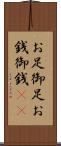 お足御足お
銭御銭